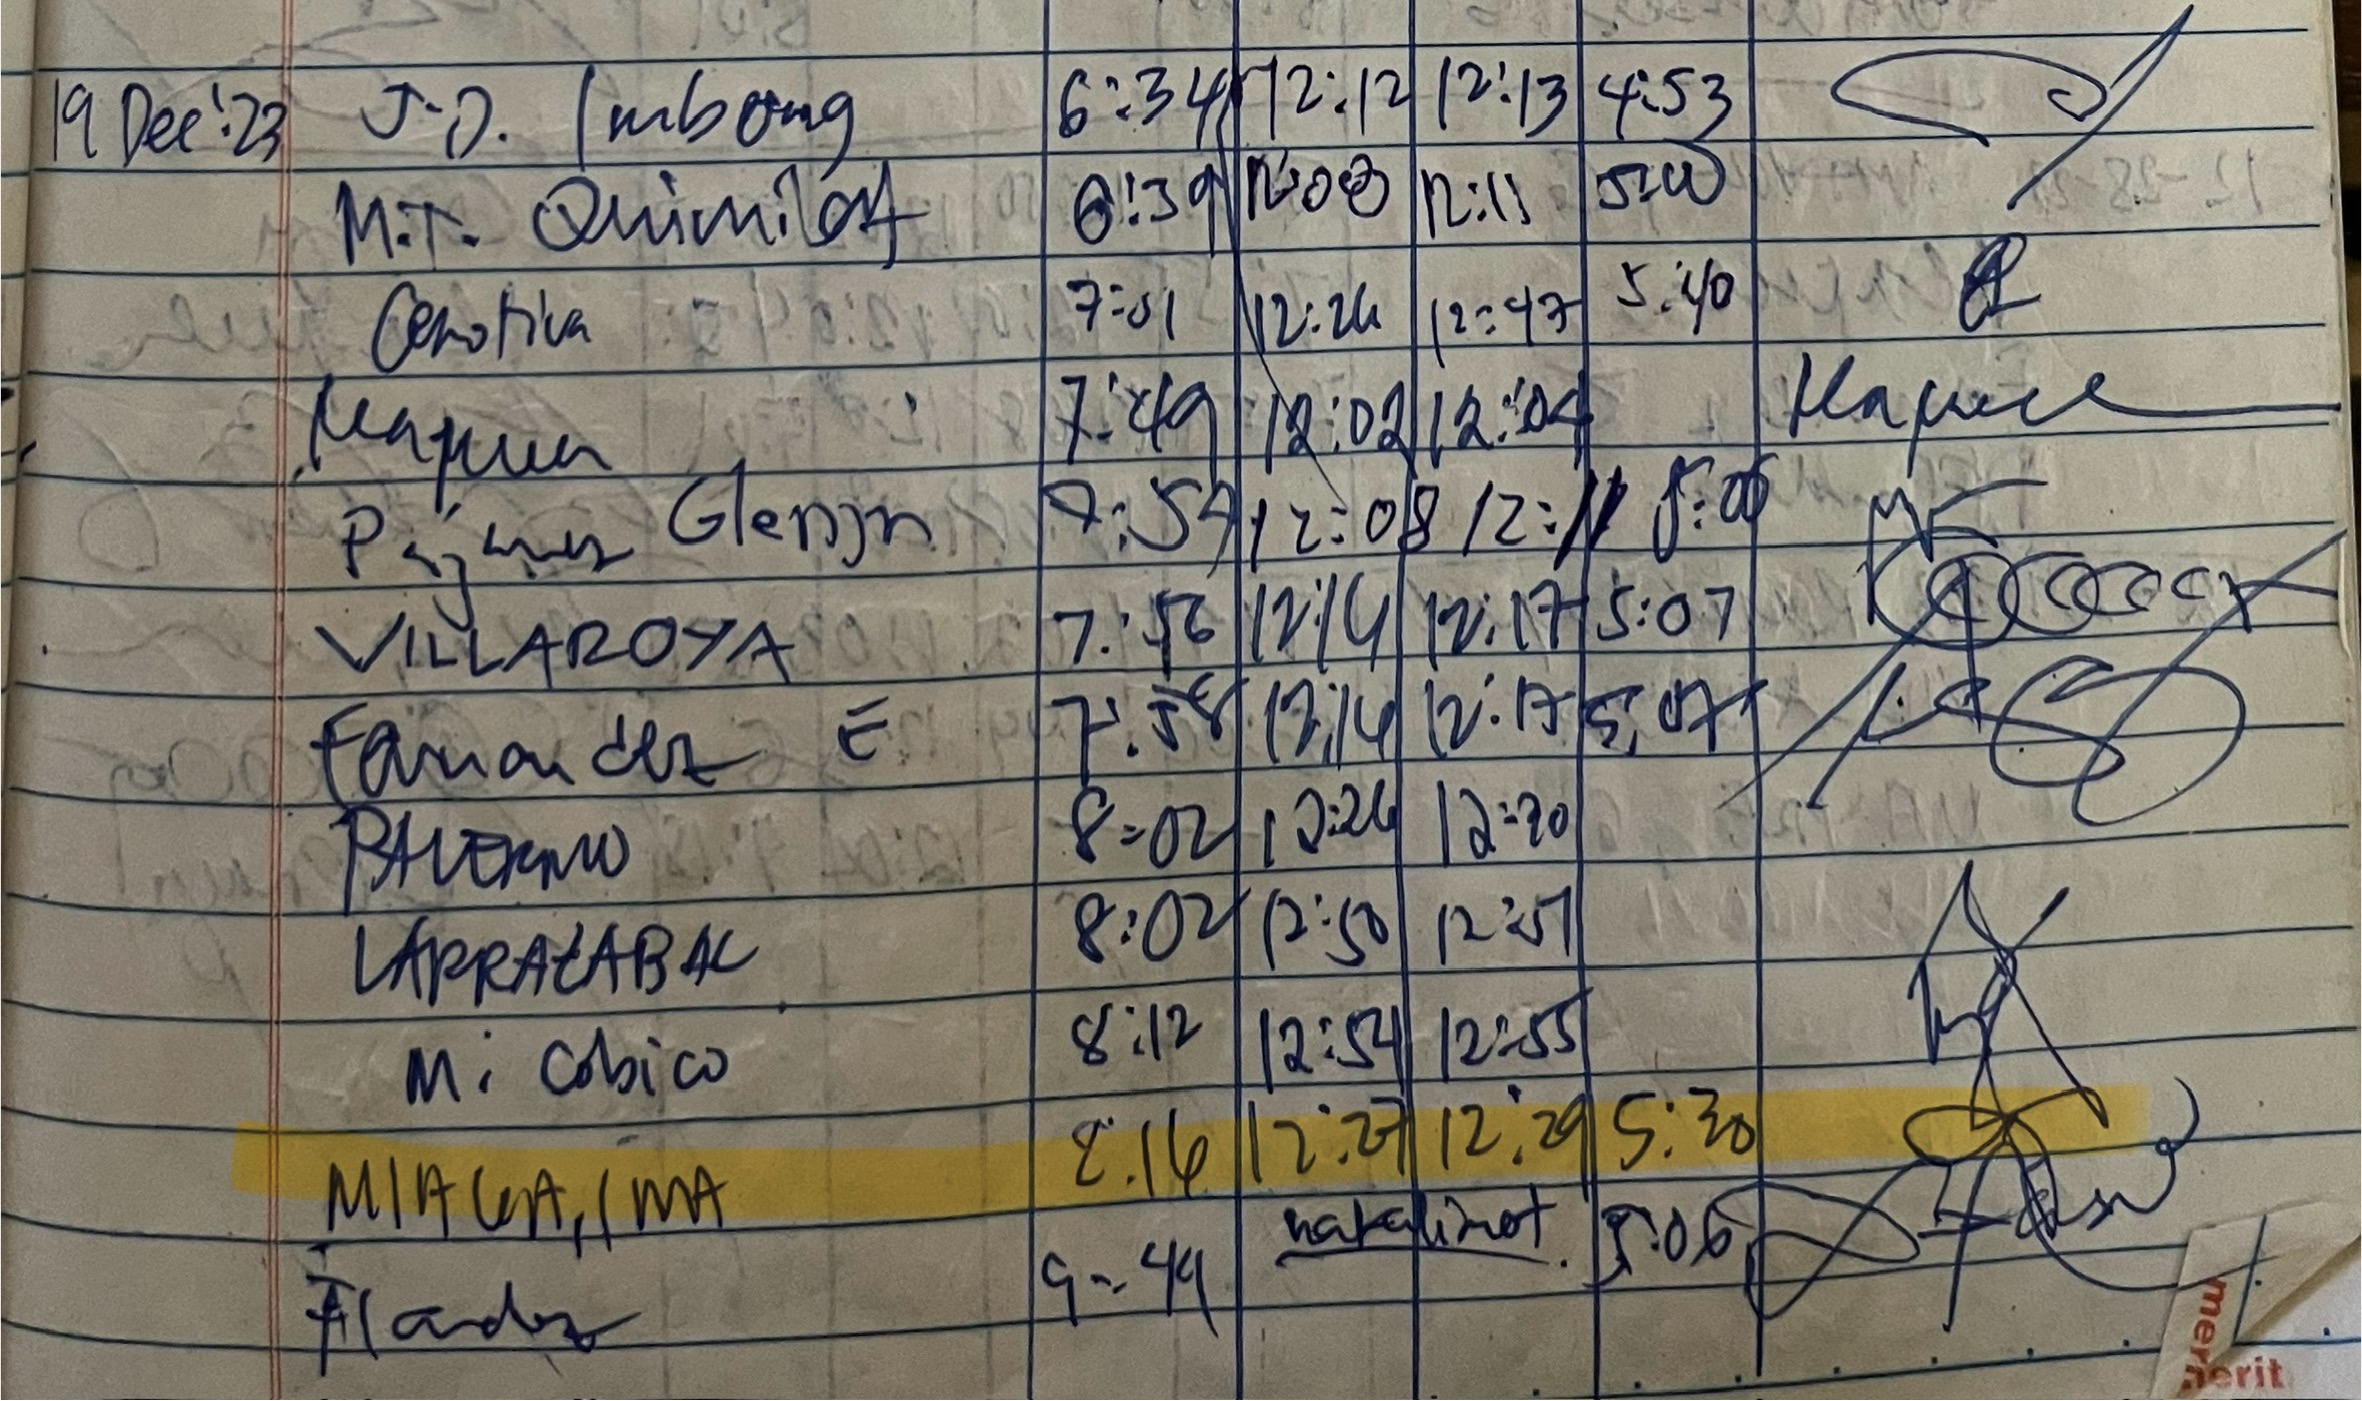 19 Dec '23 J.D. Imbong 6:34 12:12 12:13 4:53
M.T. 6:39 12:08 12:11 5:00
7:01 12:26 12:47 5:40
7:49 12:02 12:04
Glennjn 7:57 12:08 12:11 5:06
VILLAROYA 7:56 12:14 12:17 5:07
Fernandez E 7:58 12:14 12:17 5:07
PALERMO 8:02 12:26 12:30
LARRAZABAL 8:02 12:50 12:51
M. Cobico 8:12 12:54 12:55
MIAGA, IMA 8:16 12:27 12:29 5:30
9:49 nakalimot. 5:06
merit